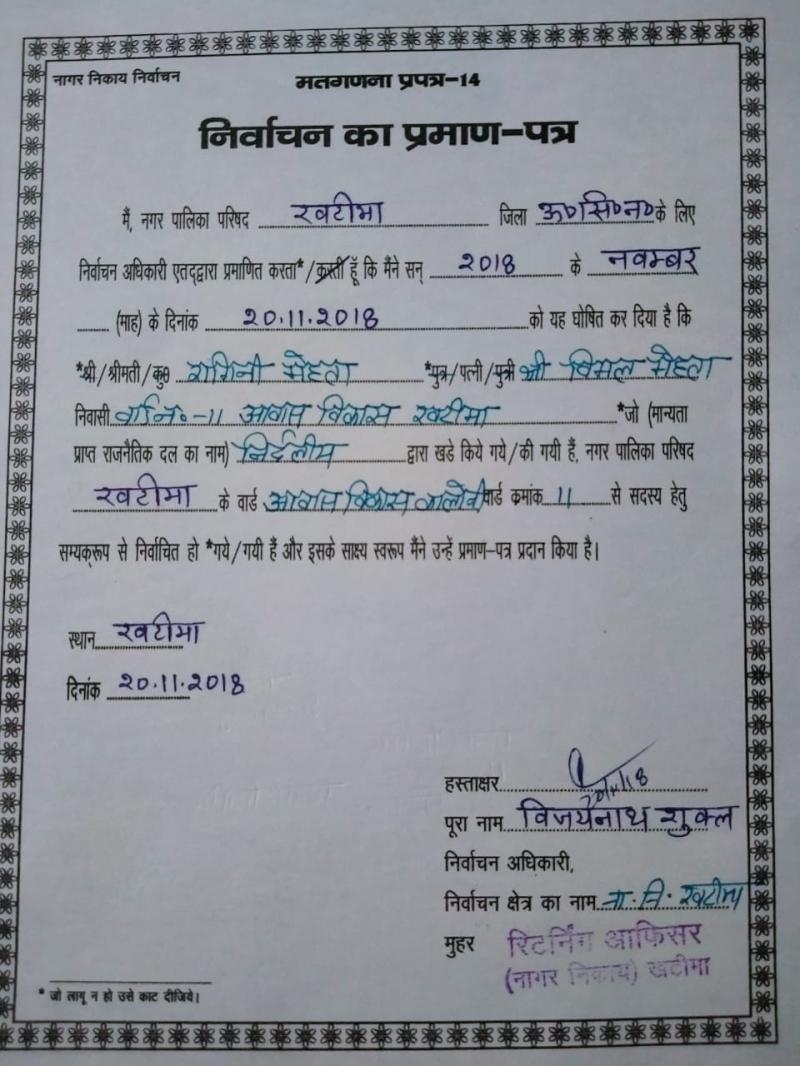 नागर निकाय निर्वाचन
मतगणना प्रपत्र-14
निर्वाचन का प्रमाण-पत्र
मैं, नगर पालिका परिषद खटीमा जिला ऊ०सि०न० के लिए
निर्वाचन अधिकारी एतद्द्वारा प्रमाणित करता*/करती हूँ कि मैंने सन् 2018 के नवम्बर
(माह) के दिनांक 20.11.2018 को यह घोषित कर दिया है कि
*श्री/श्रीमती/कु0 रागिनी मेहता *पुत्र/पत्नी/पुत्री श्री विमल मेहता
निवासी वार्ड न०-11 आवास विकास खटीमा *जो (मान्यता
प्राप्त राजनैतिक दल का नाम) निर्दलीय द्वारा खडे किये गये/की गयी हैं, नगर पालिका परिषद
खटीमा के वार्ड आवास विकास कालोनी वार्ड क्रमांक 11 से सदस्य हेतु
सम्यक्रूप से निर्वाचित हो *गये/गयी हैं और इसके साक्ष्य स्वरूप मैंने उन्हें प्रमाण-पत्र प्रदान किया है।
स्थान खटीमा
दिनांक 20.11.2018
हस्ताक्षर
पूरा नाम विजयनाथ शुक्ल
निर्वाचन अधिकारी,
निर्वाचन क्षेत्र का नाम ना. नि. खटीमा
मुहर रिटर्निंग आफिसर
(नागर निकाय) खटीमा
* जो लागू न हो उसे काट दीजिये।